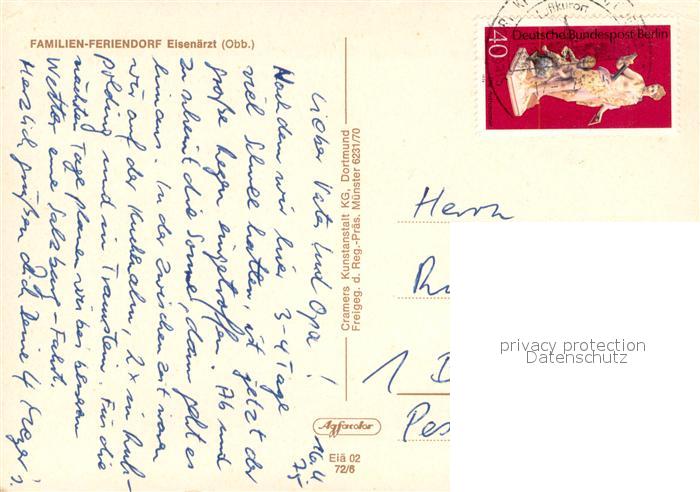 FAMILIEN-FERIENDORF Eisenärzt (Obb.)
Lieber Vater und Opa!
Nachdem wir hier 3-4 Tage
viel Schnee hatten, ist jetzt der
große Regen eingetroffen. Ab und
zu scheint die Sonne, dann geht es
hinaus. In der Zwischenzeit waren
wir auf der Kuchlalm, 2x in Ruh-
polding und in Traunstein. Für die
nächsten Tage planen wir bei besserem
Wetter eine Salzburg-Fahrt.
Herzlich grüßen Dich Deine 4
16.4
75
Cramers Kunstanstalt KG, Dortmund
Freigeg. d. Reg.-Präs. Münster 6231/70
Agfacolor
Eiä 02
72/6
Deutsche Bundespost Berlin
40
Luftkurort
Herrn
1
privacy protection
Datenschutz